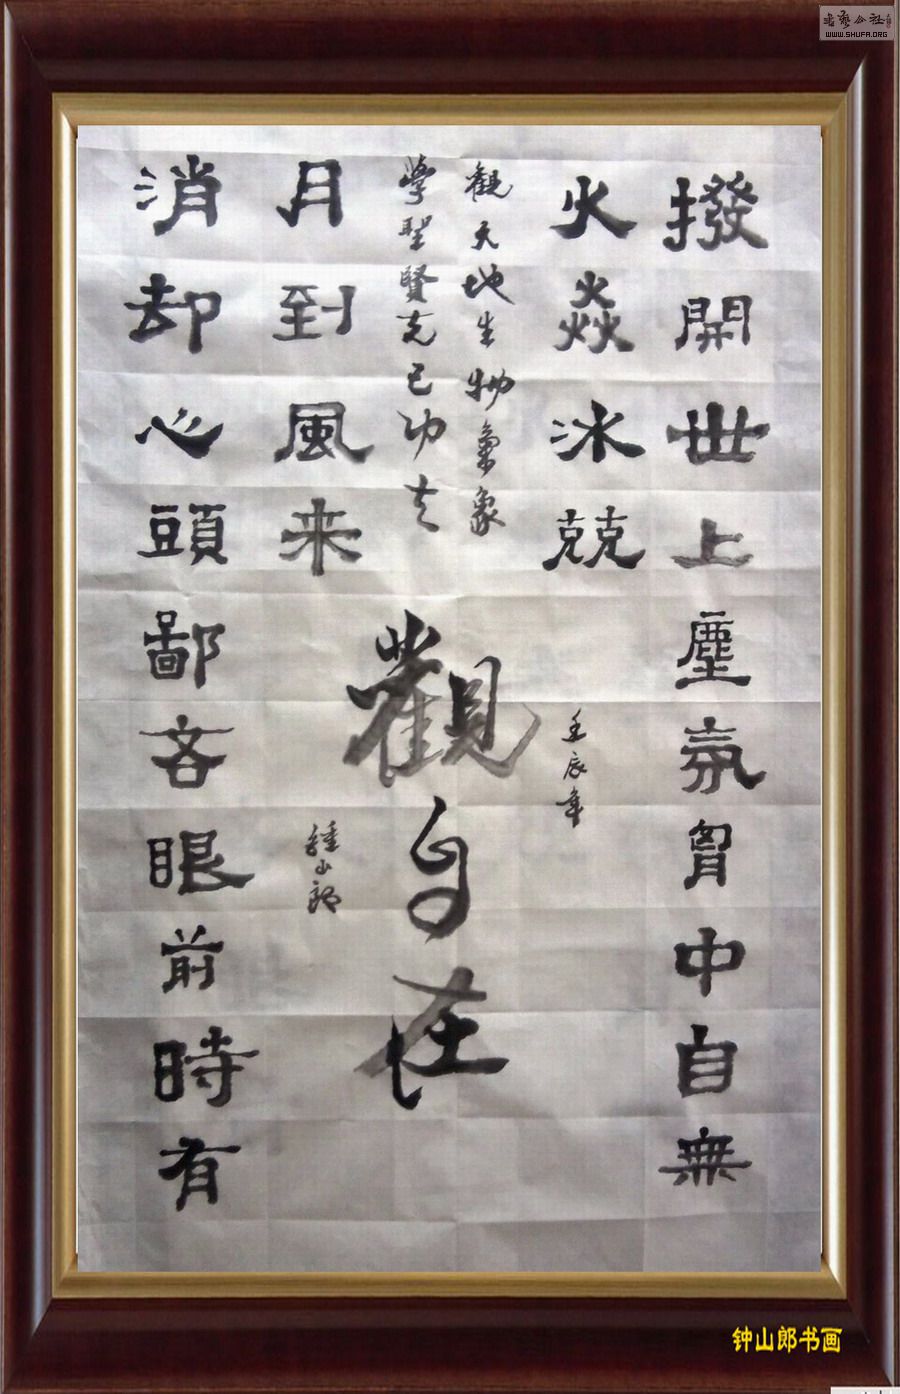 撥開世上塵氛胷中自無
火焱冰兢
觀天地生物氣象
學聖賢克己功夫
月到風来
消却心頭鄙吝眼前時有
觀自在
壬辰年
鍾山郎
钟山郎书画
WWW.SHUFA.ORG